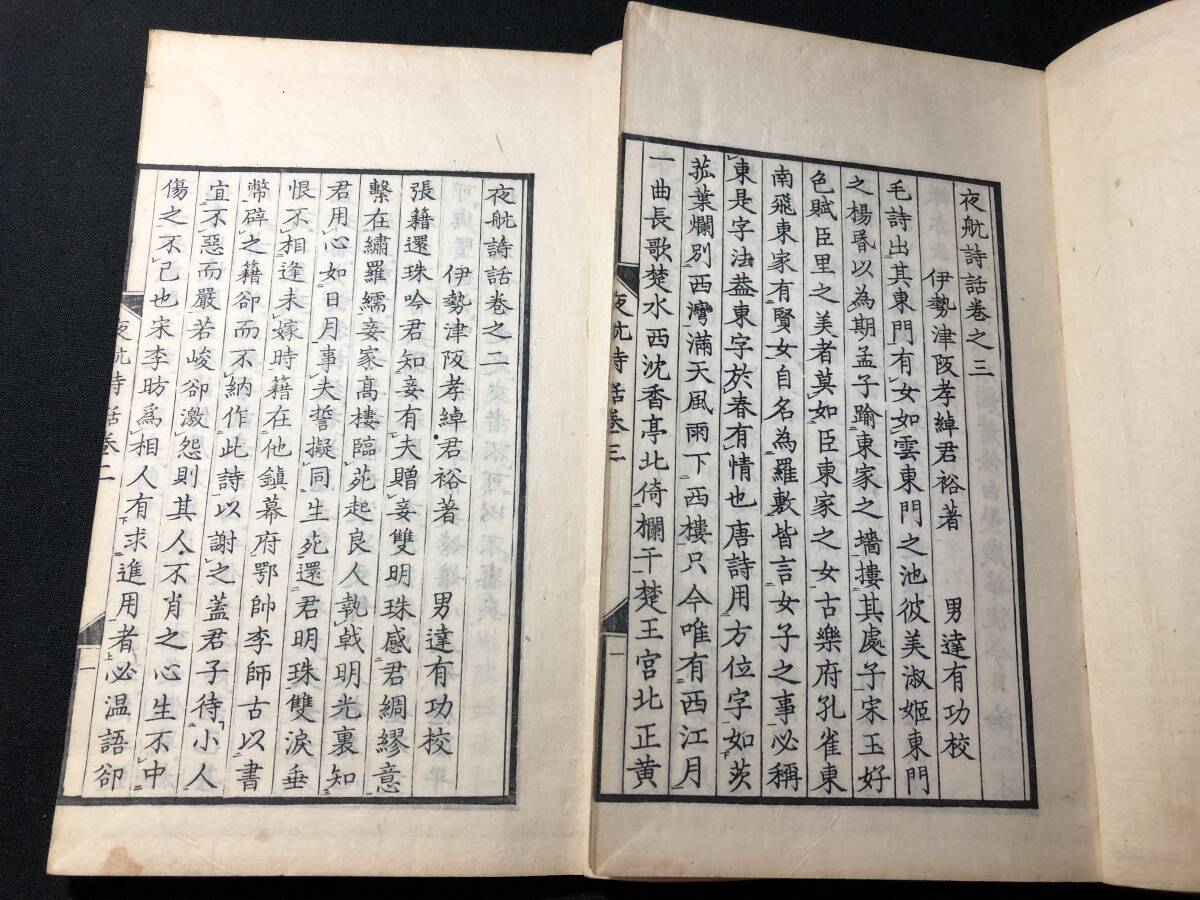 夜航詩話卷之三
伊勢津阪孝綽君裕著　男達有功校
毛詩出其東門有女如雲東門之池彼美淑姬東門
之楊昬以為期孟子踰東家之墻摟其處子宋玉好
色賦臣里之美者莫如臣東家之女古樂府孔雀東
南飛東家有賢女自名為羅敷皆言女子之事必稱
東是字法葢東字於春有情也唐詩用方位字如茨
菰葉爛別西灣滿天風雨下西樓只今唯有西江月
一曲長歌楚水西沈香亭北倚欄干楚王宮北正黄
夜航詩話卷三
一
夜航詩話卷之二
伊勢津阪孝綽君裕著　男達有功校
張籍還珠吟君知妾有夫贈妾雙明珠感君綢繆意
繫在繡羅繻妾家髙樓臨苑起良人執戟明光裏知
君用心如日月事夫誓擬同生死還君明珠雙淚垂
恨不相逢未嫁時籍在他鎮幕府鄂帥李師古以書
幣辟之籍卻而不納作此詩以謝之蓋君子待小人
宜不惡而嚴若峻卻激怨則其人不肖之心生不中
傷之不已也宋李昉爲相人有求進用者必温語卻
夜航詩話卷二
一